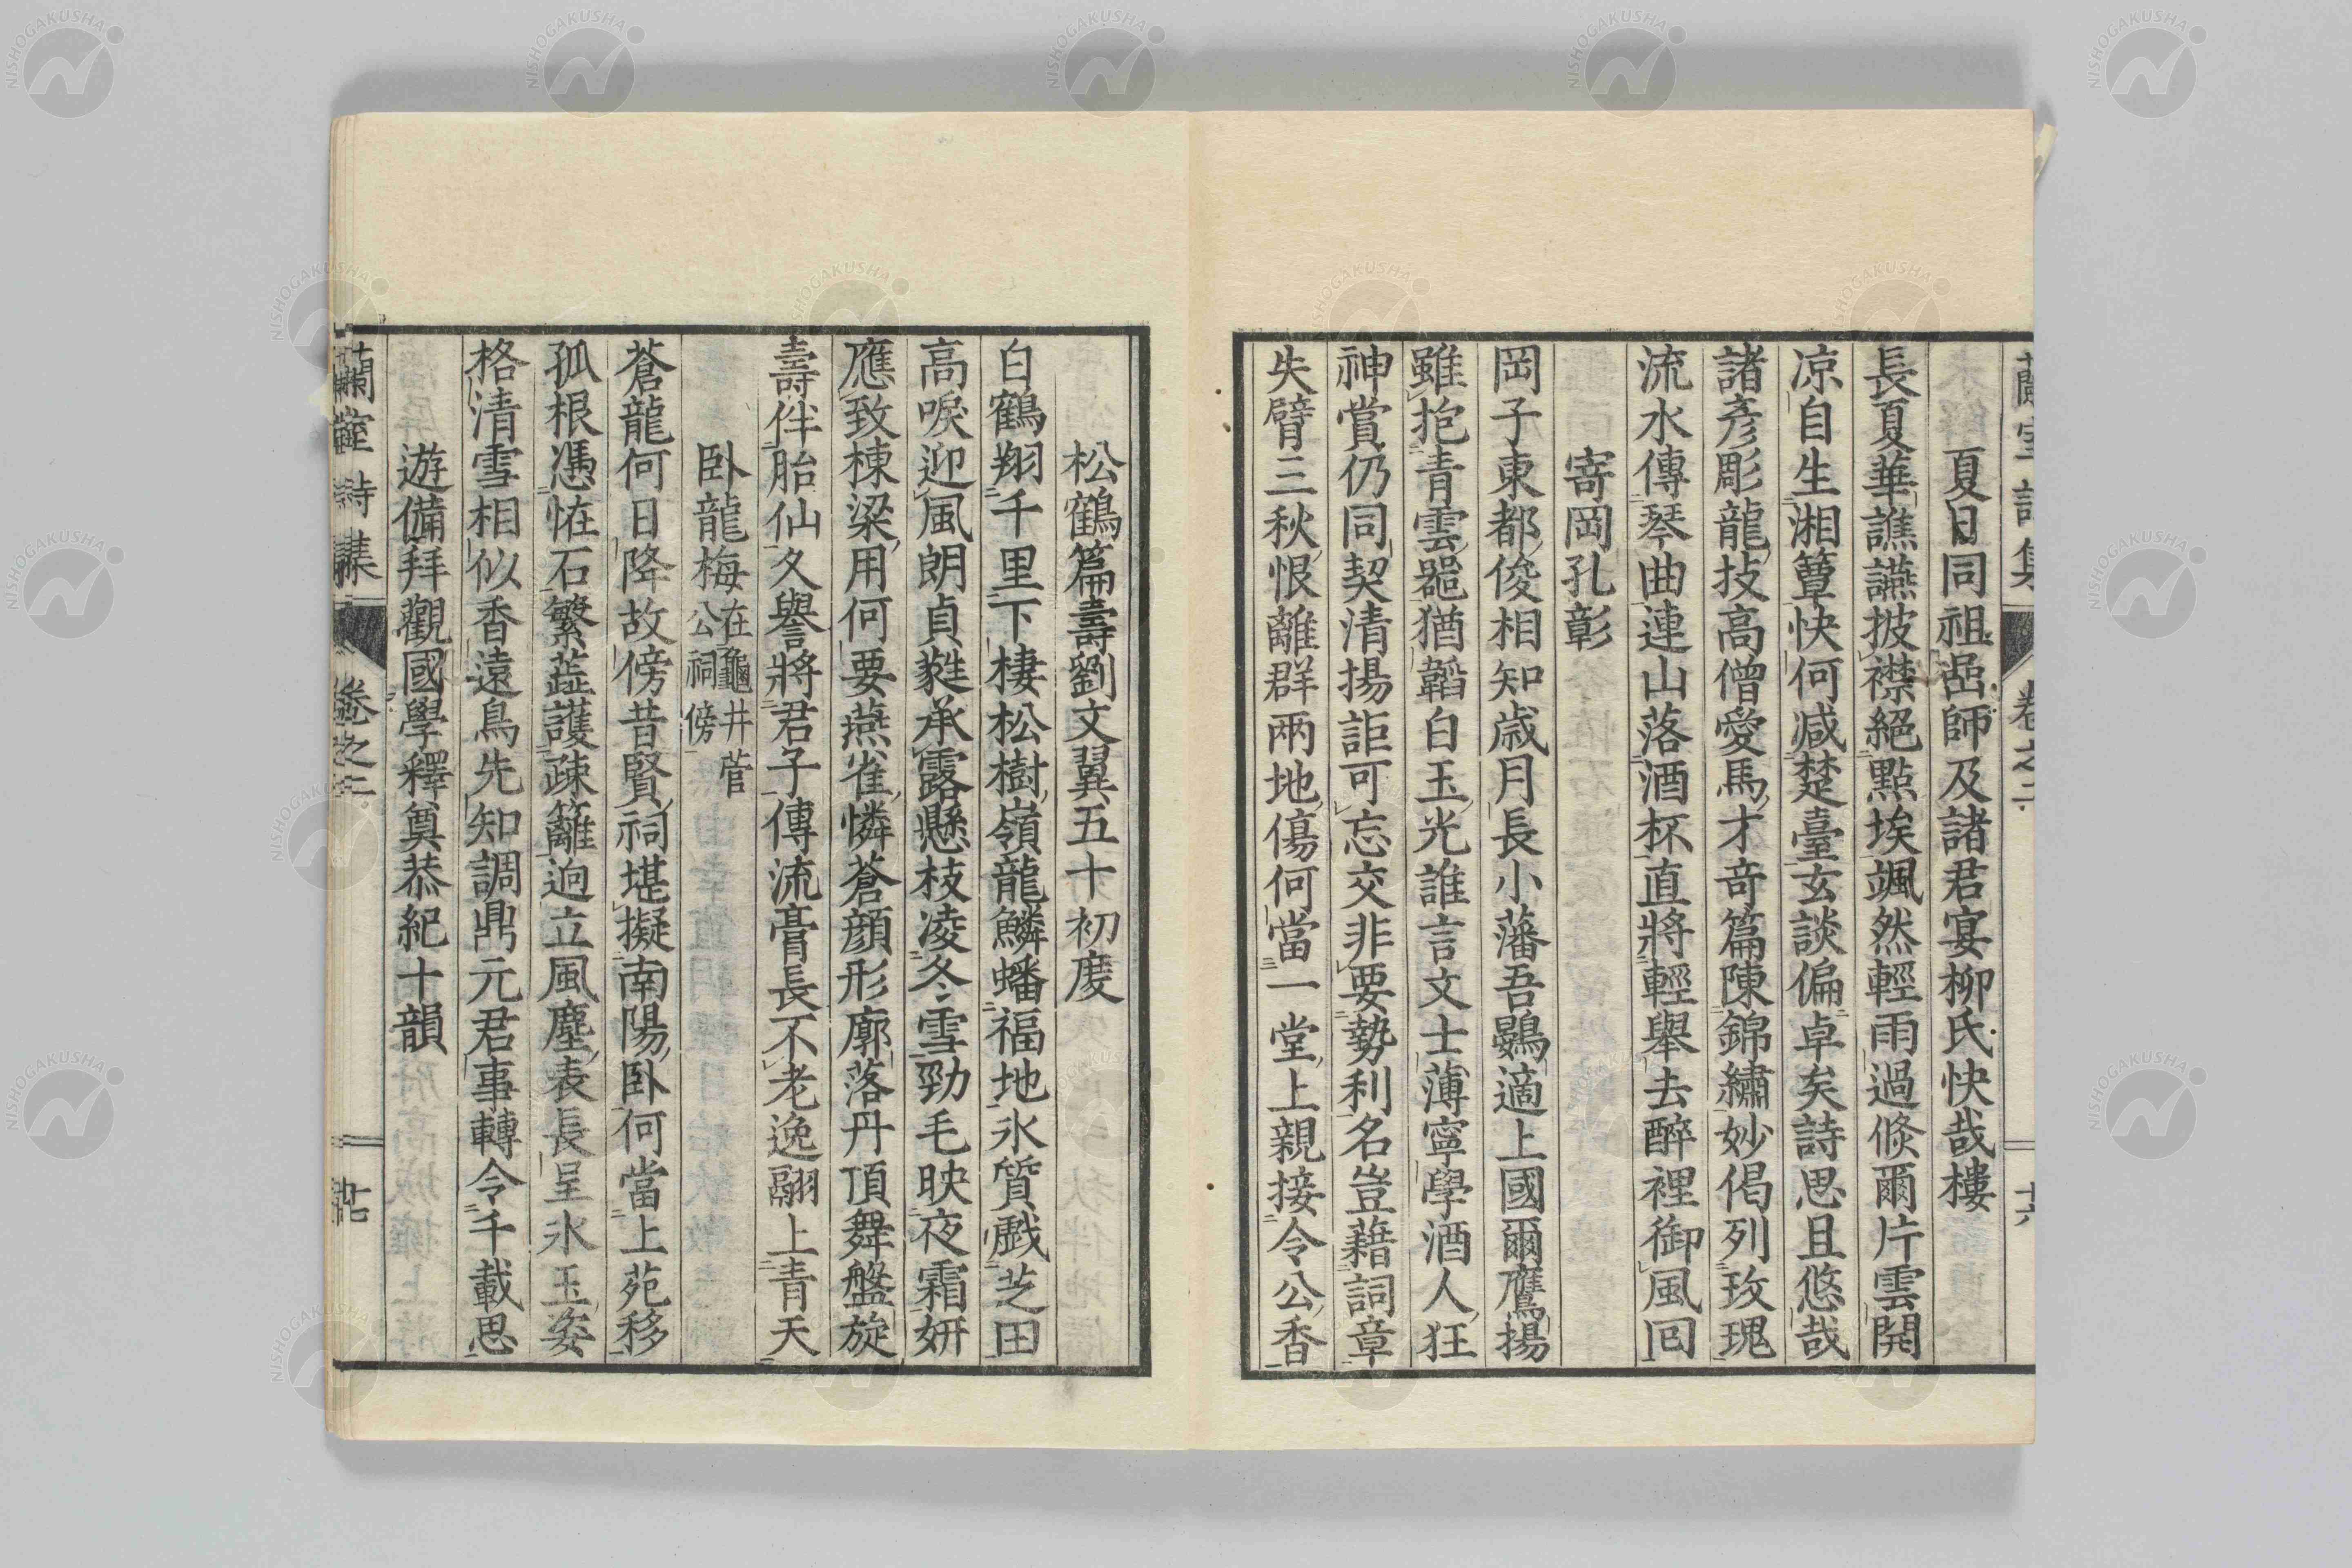 蘭室詩集 卷之二 十六
夏日同祖嵒師及諸君宴柳氏快哉樓
長夏華譙讌披襟絕點埃颯然輕雨過倏爾片雲開
凉自生湘簟快何減楚臺玄談偏卓矣詩思且悠哉
諸彥彫龍技高僧愛馬才奇篇陳錦繡妙偈列玫瑰
流水傳琴曲連山落酒杯直將輕舉去醉裡御風回
寄岡孔彰
岡子東都俊相知歲月長小藩吾鷃適上國爾鷹揚
雖抱青雲器猶韜白玉光誰言文士薄寧學酒人狂
神賞仍同契清揚詎可忘交非要勢利名豈藉詞章
失臂三秋恨離群兩地傷何當一堂上親接令公香
松鶴篇壽劉文翼五十初度
白鶴翔千里下棲松樹嶺龍鱗蟠福地氷質戲芝田
高唳迎風朗貞蕤承露懸枝凌冬雪勁毛映夜霜妍
應致棟梁用何要燕雀憐蒼顏形廓落丹頂舞盤旋
壽伴胎仙久譽將君子傳流膏長不老逸翮上青天
臥龍梅在龜井菅公祠傍
蒼龍何日降故傍昔賢祠堪擬南陽臥何當上苑移
孤根憑恠石繁蘂護疎籬逈立風塵表長呈氷玉姿
格清雪相似香遠鳥先知調鼎元君事轉令千載思
遊備拜觀國學釋奠恭紀十韻
蘭室詩集 卷之二 十七
NISHOGAKUSHA